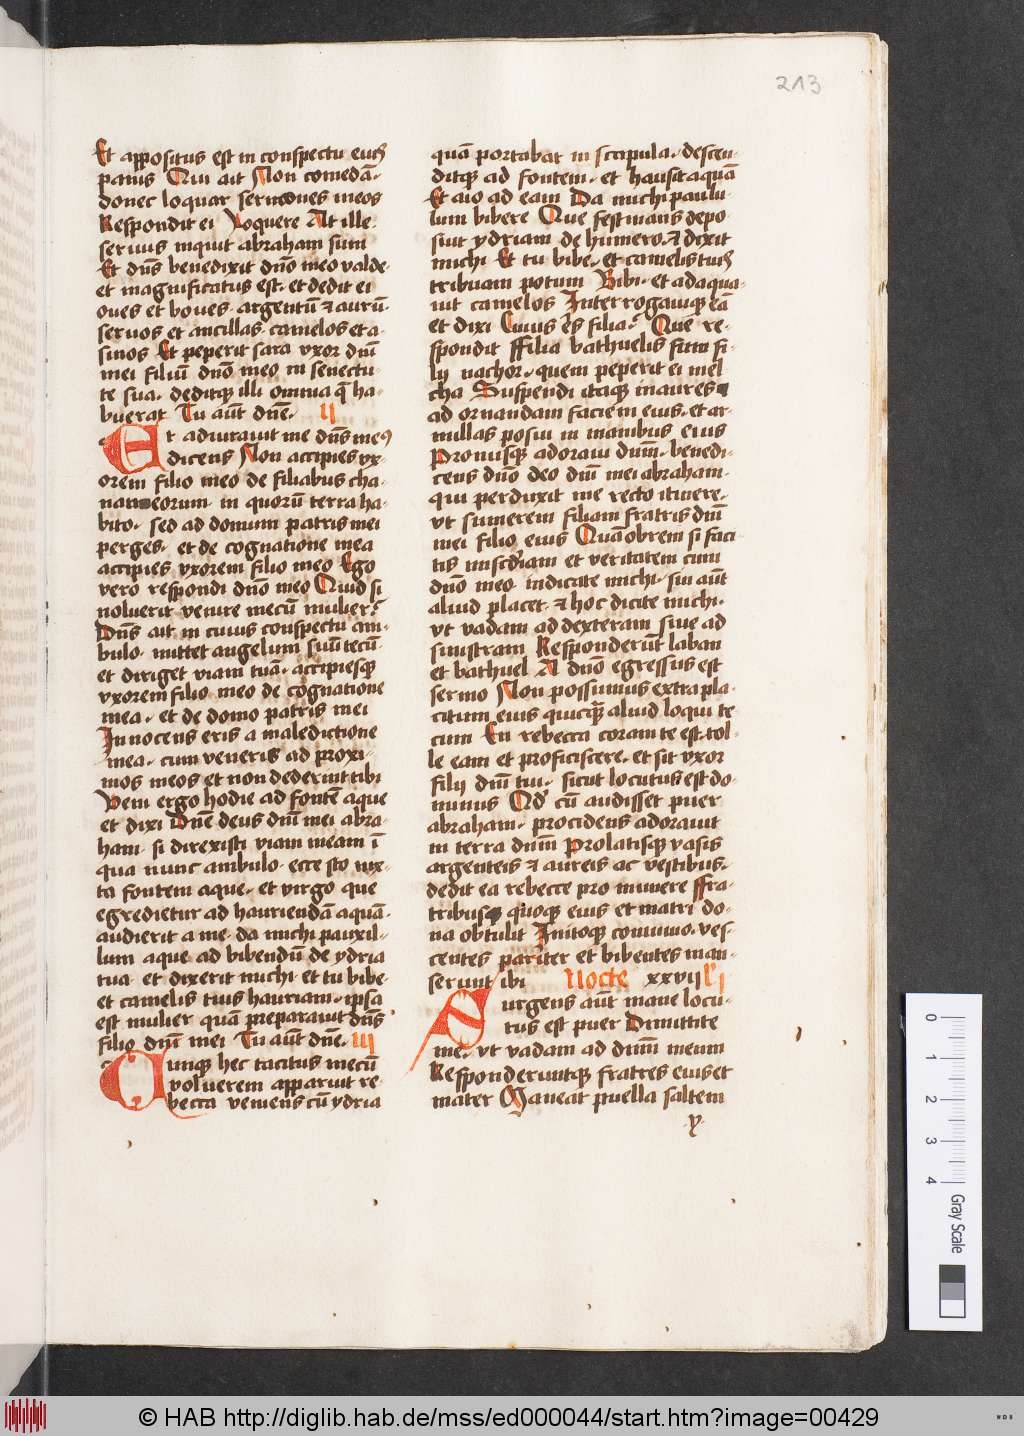 213
Et appositus est in conspectu euꝰ
panis Qui ait Non comedā·
donec loquar sermones meos
Respondit ei Loquere At ille
seruus inquit abraham sum
Et dūs benedixit dūo meo valde·
et magnificatus est· et dedit ei
oues et boues· argentū ⁊ aurū·
seruos et ancillas· camelos et a-
sinos Et peperit sara vxor dn̄i
mei filiū dn̄o meo in senectu-
te sua· deditqꝫ illi omnia q̄ ha-
buerat Tu aūt dn̄e· II
Et adiurauit me dn̄s meꝰ
dicens Non accipies vx-
orem filio meo de filiabus cha-
naneorum· in quorū terra ha-
bito· sed ad domum patris mei
perges· et de cognatione mea
accipies vxorem filio meo Ego
vero respondi dn̄o meo Quid si
noluerit venire mecū mulier?
Dn̄s ait in cuius conspectu am-
bulo· mittet angelum suū tecū·
et diriget viam tuā· accipiesqꝫ
vxorem filio meo de cognatione
mea· et de domo patris mei
Innocens eris a maledictione
mea· cum veneris ad proxi-
mos meos et non dederint tibi
Veni ergo hodie ad fontē aque
et dixi Dn̄e deus dn̄i mei abra-
ham· si direxisti viam meam ī
qua nunc ambulo· ecce sto iux-
ta fontem aque· et virgo que
egredietur ad hauriendā aquā·
audierit a me· da michi pauxil-
lum aque ad bibendū de ydria
tua· et dixerit michi· et tu bibe·
et camelis tuis hauriam· ipsa
est mulier quā preparauit dn̄s
filio dn̄i mei Tu aūt dn̄e· III
Cunqꝫ hec tacitus mecū
voluerem apparuit re-
becca veniens cū ydria
quā portabat in scapula· descen-
ditqꝫ ad fontem· et hausit aquā
Et aio ad eam Da michi paulu-
lum bibere Que festinans depo-
suit ydriam de humero· ⁊ dixit
michi Et tu bibe· et camelis tuis
tribuam potum Bibi· et adaqua-
uit camelos Interrogauiqꝫ eā
et dixi Cuius es filia? Que re-
spondit ffilia bathuelis sum fi-
lij nachor· quem peperit ei mel-
cha Suspendi itaqꝫ inaures
ad ornandam faciem eius· et ar-
millas posui in manibus eius
Pronusqꝫ adoraui dn̄m· benedi-
cens dn̄o deo dn̄i mei abraham·
qui perduxit me recto itinere·
vt sumerem filiam fratris dn̄i
mei filio eius Quāobrem si faci-
tis misc̄diam et veritatem cum
dn̄o meo indicate michi· sin aūt
aliud placet· ⁊ hoc dicite michi·
vt vadam ad dexteram siue ad
sinistram Responderūt laban
et bathuel A dn̄o egressus est
sermo Non possumus extra pla-
citum eius quicqꝫ aliud loqui te-
cum En rebecca coram te est tol-
le eam et proficiscere· et sit vxor
filij dn̄i tui· sicut locutus est do-
minus Qd̄ cū audisset puer
abraham· procidens adorauit
in terra dn̄m Prolatisqꝫ vasis
argenteis ⁊ aureis ac vestibus·
dedit ea rebecce pro munere ffra-
tribus quoqꝫ eius et matri do-
na obtulit Initoqꝫ conuiuio· ves-
centes pariter et bibentes man-
serunt ibi Nocte xxvii
Surgens aūt mane locu-
tus est puer Dimittite
me· vt vadam ad dn̄m meum
Responderuntqꝫ fratres eius et
mater Maneat puella saltem
·y·
0 1 2 3 4 Gray Scale
© HAB http://diglib.hab.de/mss/ed000044/start.htm?image=00429